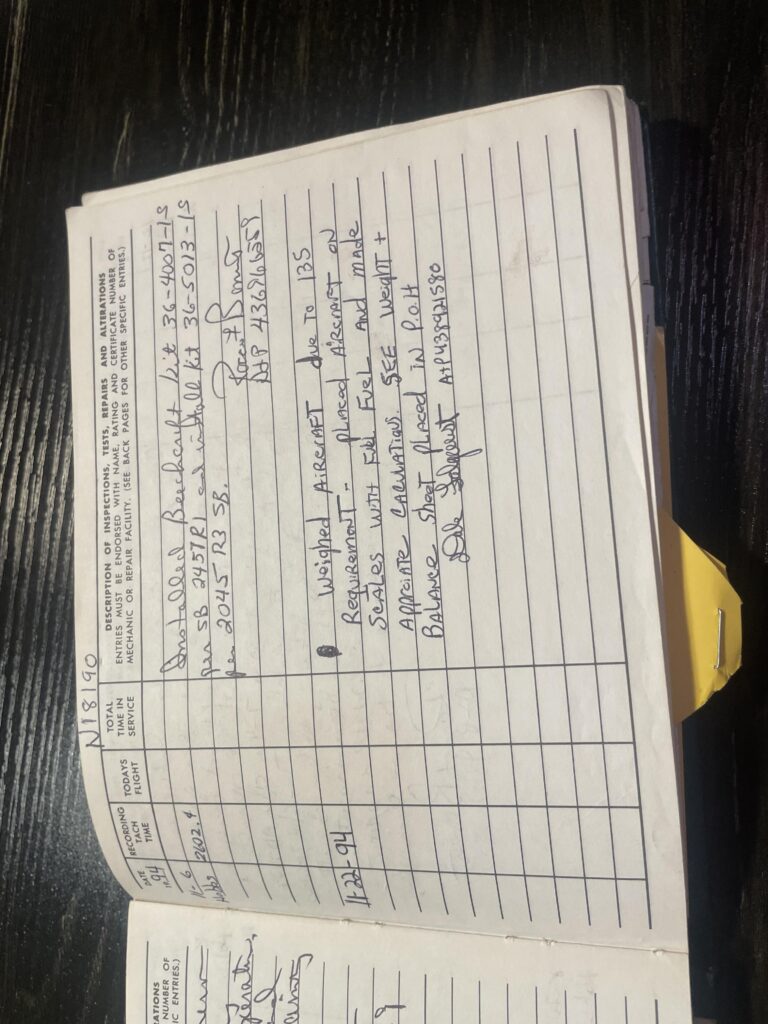 N18190
DATE
19 94
RECORDING TACH TIME
TODAYS FLIGHT
TOTAL TIME IN SERVICE
DESCRIPTION OF INSPECTIONS, TESTS, REPAIRS AND ALTERATIONS
ENTRIES MUST BE ENDORSED WITH NAME, RATING AND CERTIFICATE NUMBER OF
MECHANIC OR REPAIR FACILITY. (SEE BACK PAGES FOR OTHER SPECIFIC ENTRIES.)
Installed Beechcraft kit 36-4007-1S
11-6 per SB 2457R1 and install kit 36-5013-1S
Hobbs 2602.4 per 2045 R3 SB.
A+P
Weighed AIRCRAFT due to 135
11-22-94 Requirement - placed AIRCRAFT ON
SCALES WITH Full Fuel AND MADE
APPROIATE CACULATIONS. SEE Weight +
BALANCE Sheet placed in P.O.H
Dale A+P 438921580
ATIONS
NUMBER OF
IC ENTRIES.)